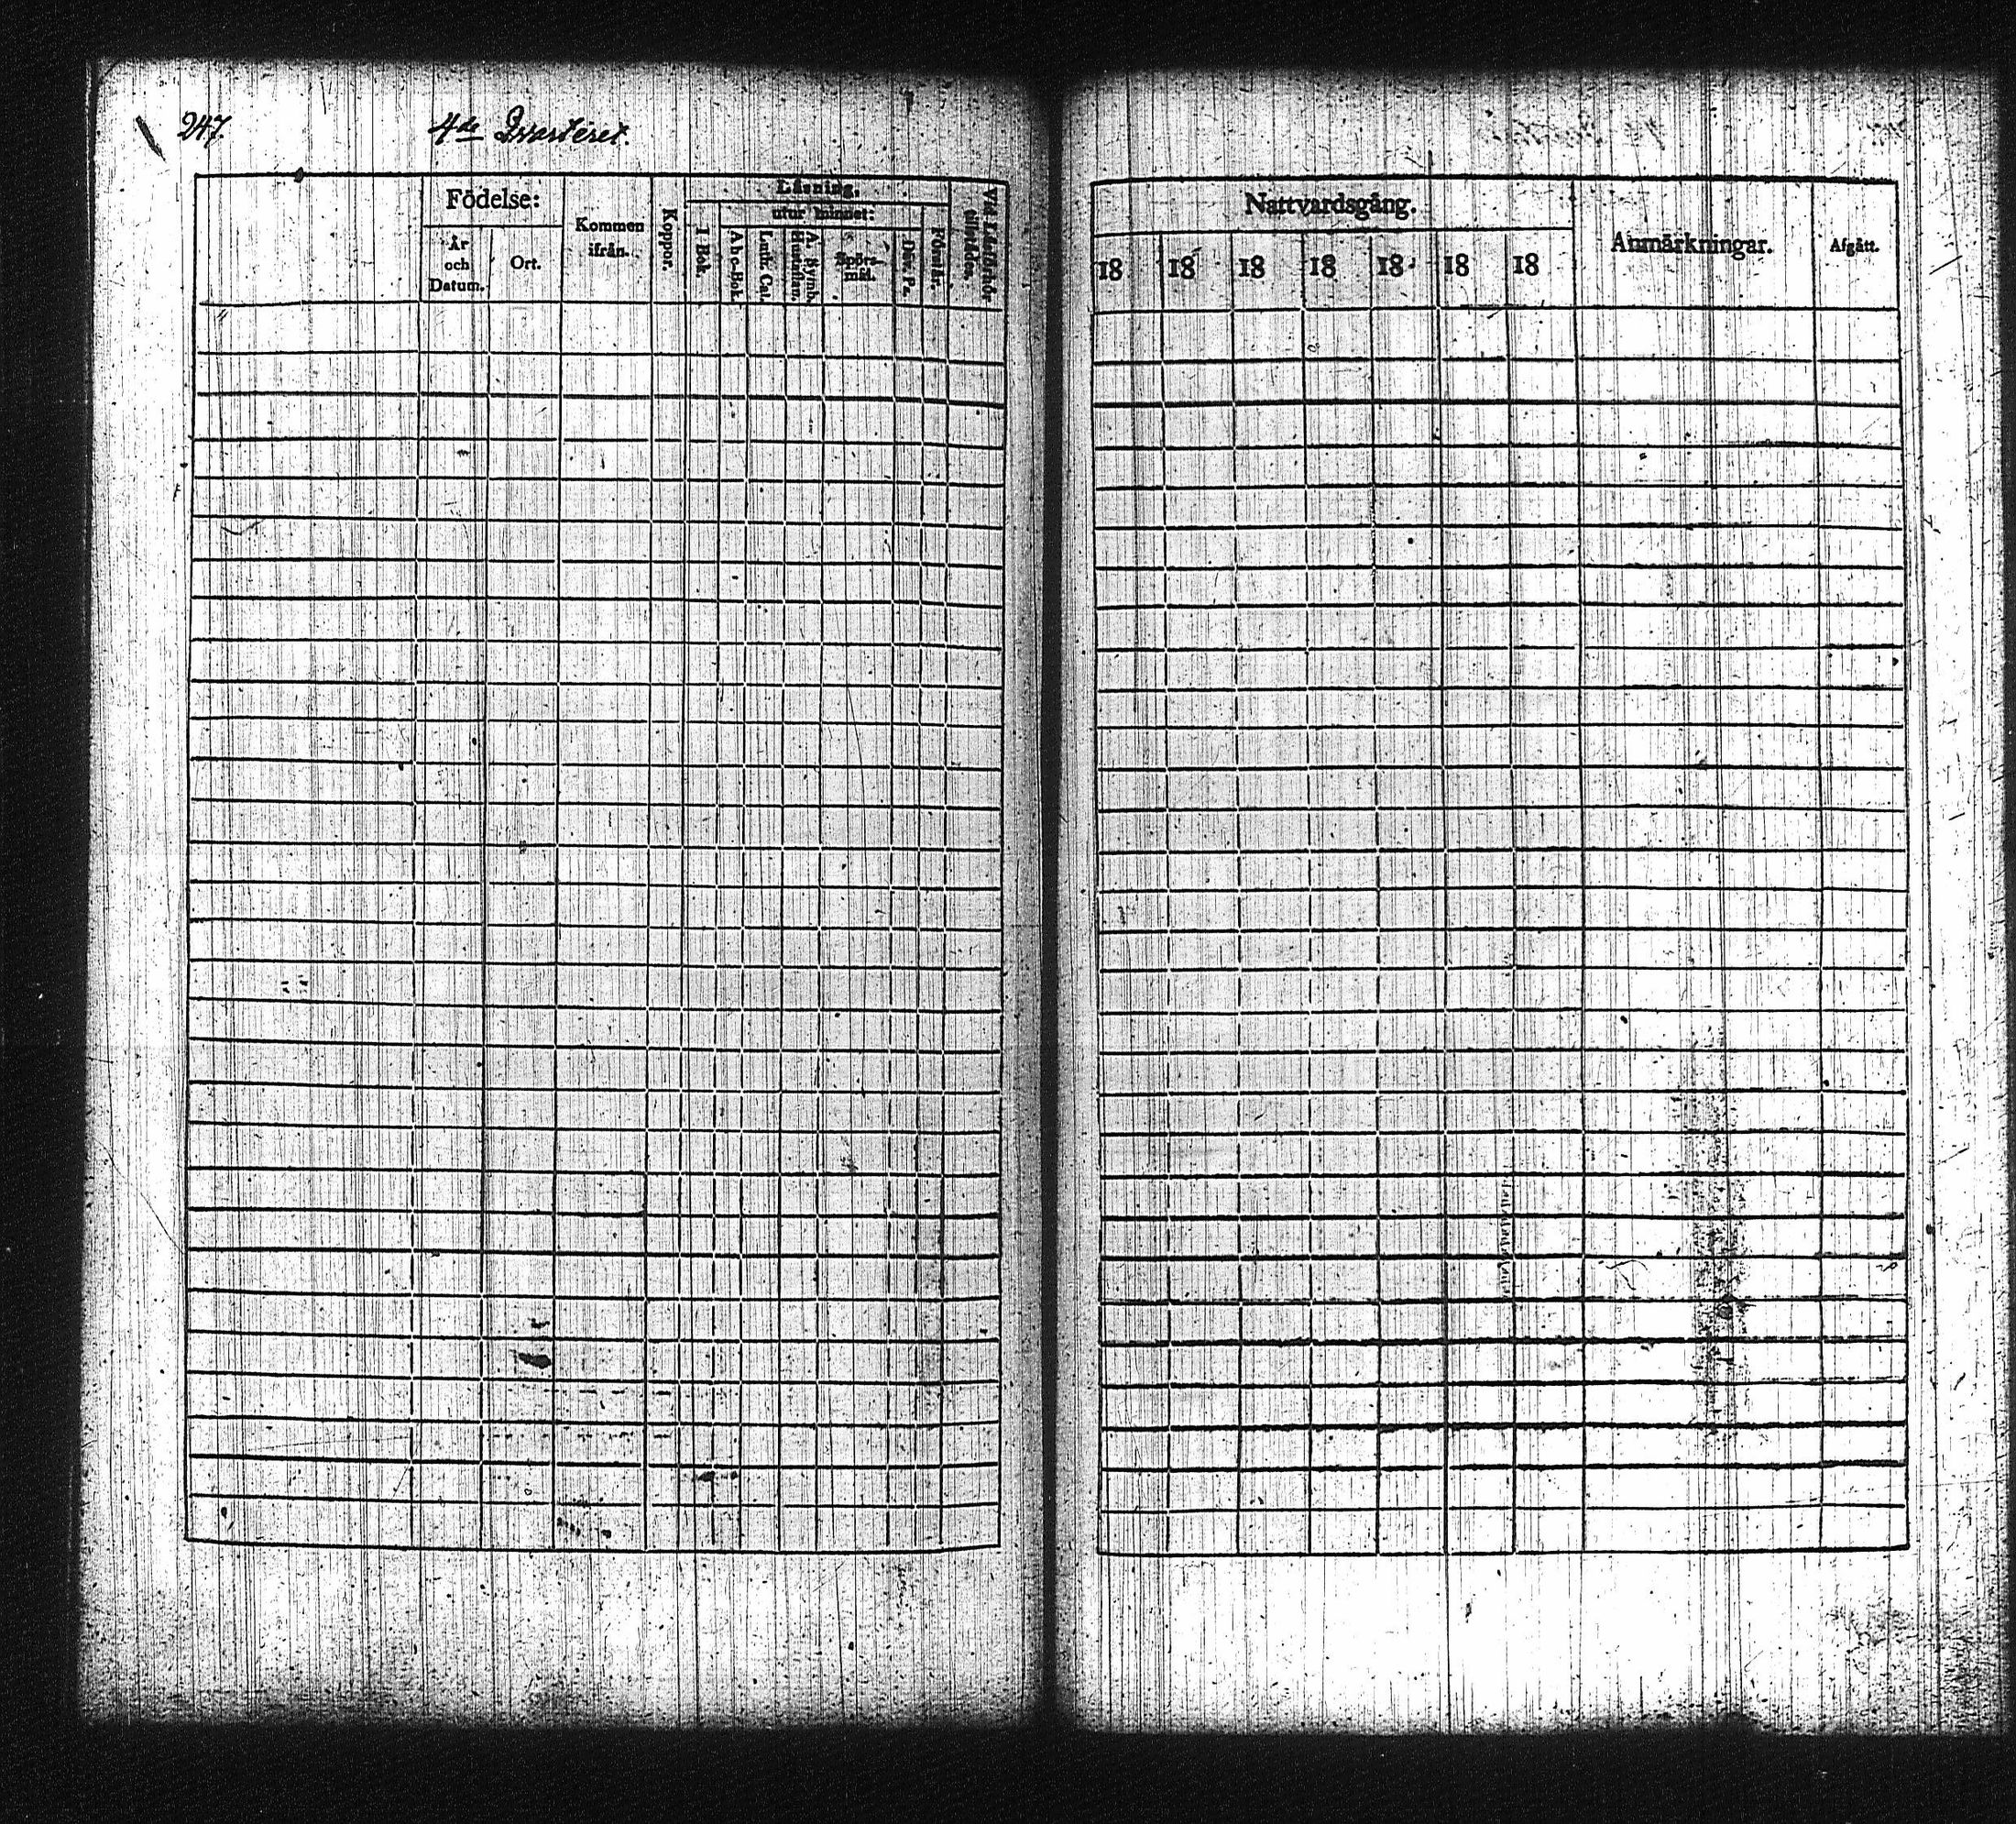 247.
4de Qvarteret.
Födelse:
År och Datum.
Ort.
Kommen ifrån.
Koppor.
Läsning.
I Bok.
utur minnet:
Abc-Bok.
Luth. Cat.
A. Symb. Hustaflan.
Spörs-mål.
Dav. Ps.
Förstår.
Vid Läsförhör tillstädes.
Nattvardsgång.
18 18 18 18 18 18 18
Anmärkningar.
Afgått.